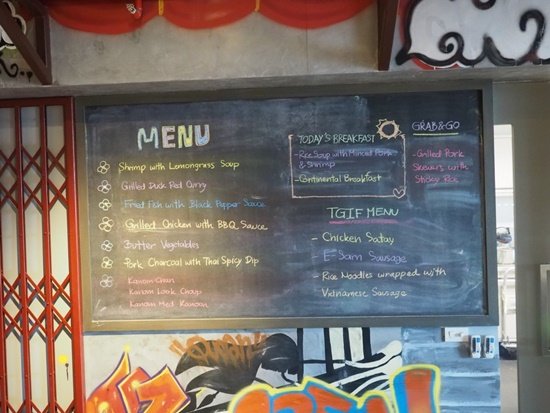 MENU
Shrimp with Lemongrass Soup
Grilled Duck Red Curry
Fried Fish with Black Pepper Sauce
Grilled Chicken with BBQ Sauce
Butter Vegetables
Pork Charcoal with Thai Spicy Dip
Kanom Chan
Kanom Look Choup
Kanom Med Kanoon
TODAY'S BREAKFAST
- Rice Soup with Minced Pork
& Shrimp
- Continental Breakfast
TGIF MENU
- Chicken Satay
- E-San Sausage
- Rice Noodles wrapped with
Vietnamese Sausage
GRAB&GO
- Grilled Pork
Skewers with
Sticky Rice